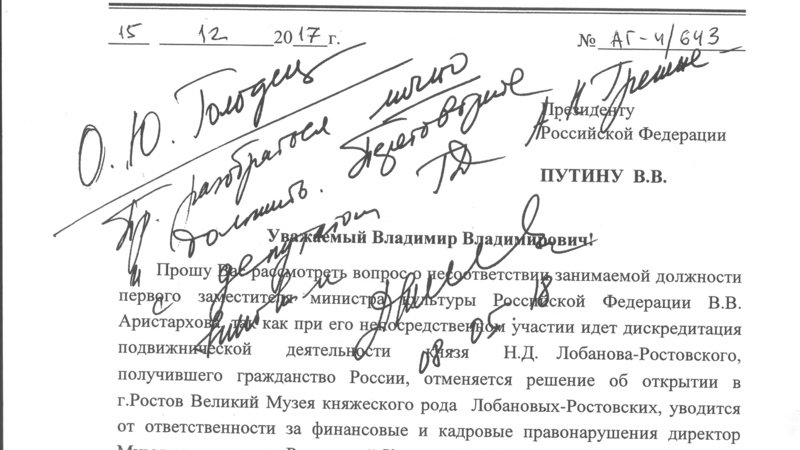 15 12 2017 г. № АГ-4/643
О. Ю. Голодец
Пр. разобраться лично
и доложить. Переговорите
с депутатом ГД
08 05 18
Президенту
Российской Федерации
ПУТИНУ В.В.
Уважаемый Владимир Владимирович!
Прошу Вас рассмотреть вопрос о несоответствии занимаемой должности
первого заместителя министра культуры Российской Федерации В.В.
Аристархова, так как при его непосредственном участии идет дискредитация
подвижнической деятельности князя Н.Д. Лобанова-Ростовского,
получившего гражданство России, отменяется решение об открытии в
г.Ростов Великий Музея княжеского рода Лобановых-Ростовских, уводится
от ответственности за финансовые и кадровые правонарушения директор